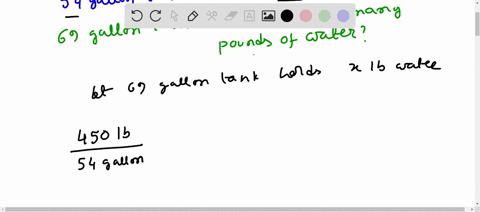 54 gallon
69 gallon many
pounds of water?
let 69 gallon tank holds x lb water
450 lb
54 gallon